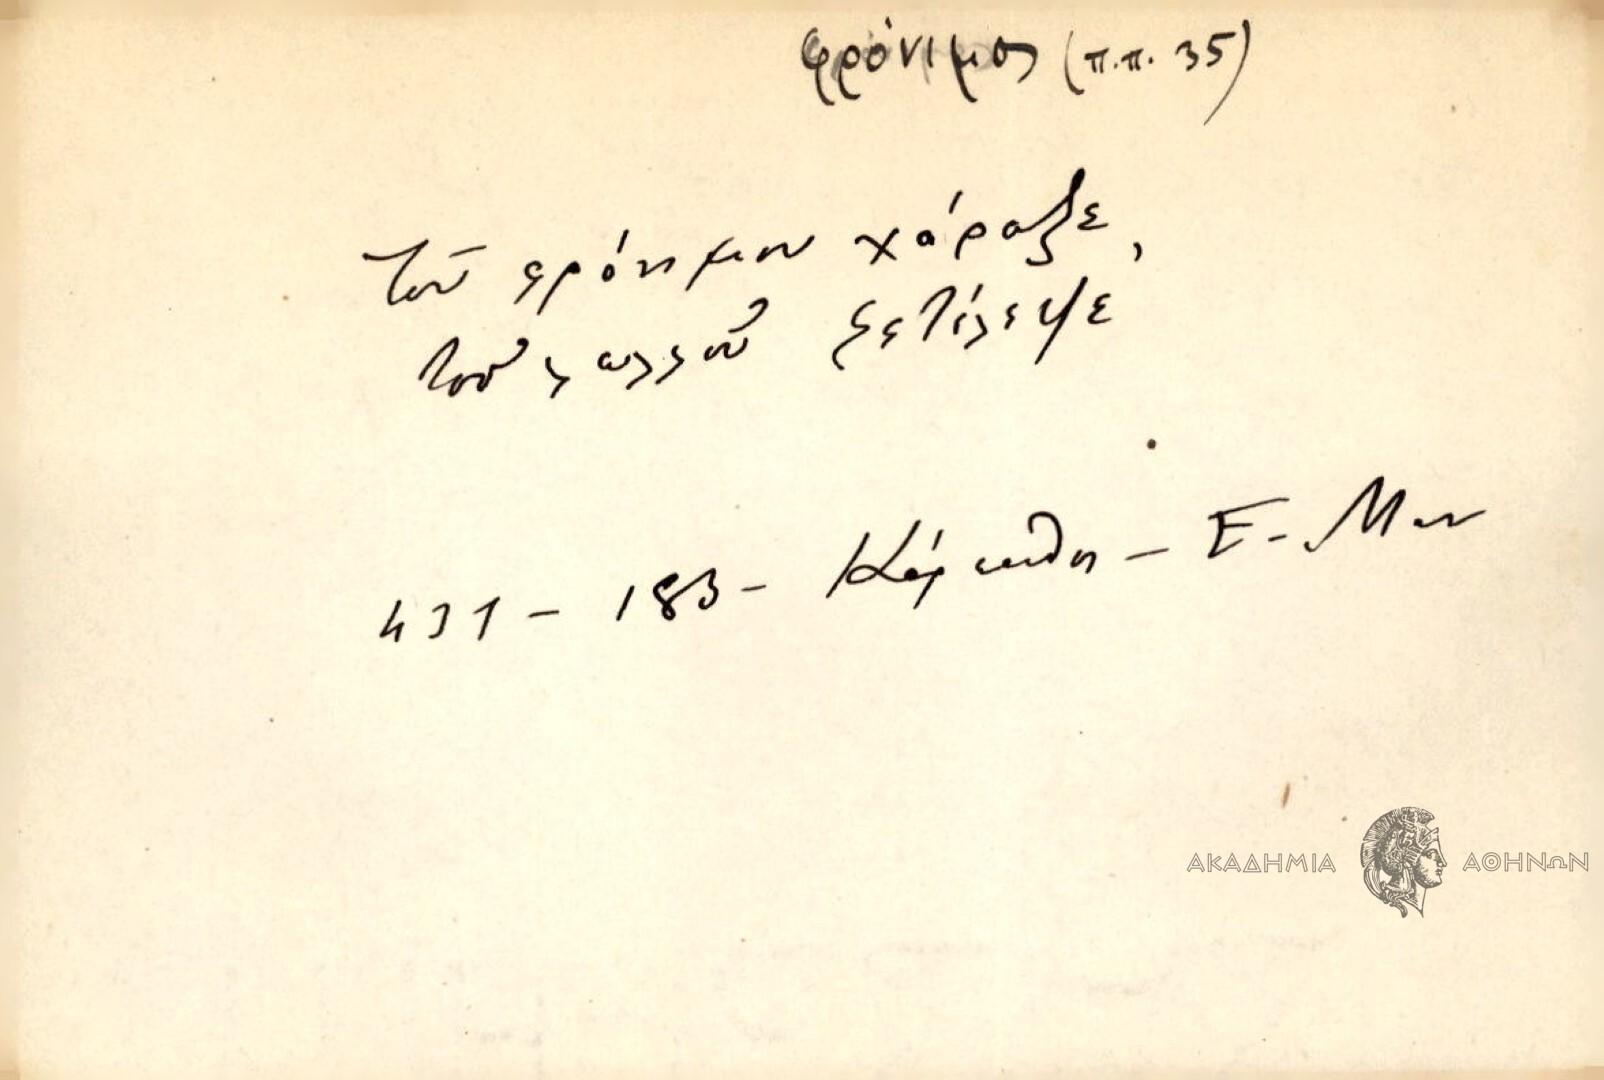 φρόνιμος (π.π. 35)
Τοῦ φρόνιμου χάραξε,
τοῦ ξετέλεψε
431 – 183 – Κάρπαθος – Ε. Μαν
ΑΚΑΔΗΜΙΑ ΑΘΗΝΩΝ